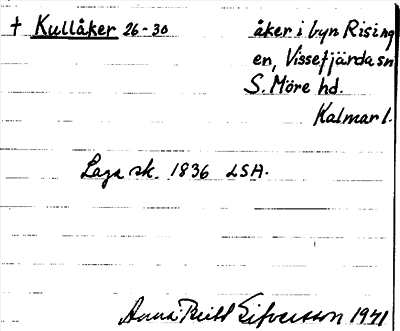 † Kullåker 26-30 åker i byn Rising
en, Vissefjärda sn
S. Möre hd.
Kalmar l.
Laga sk. 1836 LSA.
Anna Britt Sifversson 1971